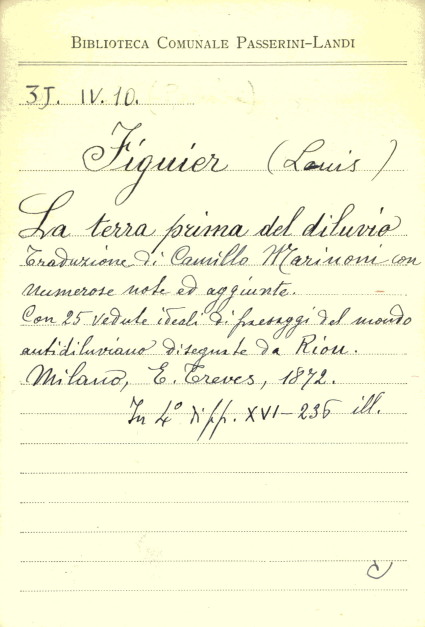 BIBLIOTECA COMUNALE PASSERINI-LANDI
3J. IV. 10.
Figuier (Louis)
La terra prima del diluvio
Traduzione di Camillo Marinoni con
numerose note ed aggiunte.
Con 25 vedute ideali di paesaggi del mondo
antidiluviano disegnate da Riou.
Milano, E. Treves, 1872.
In 4° di pp. XVI-236 ill.